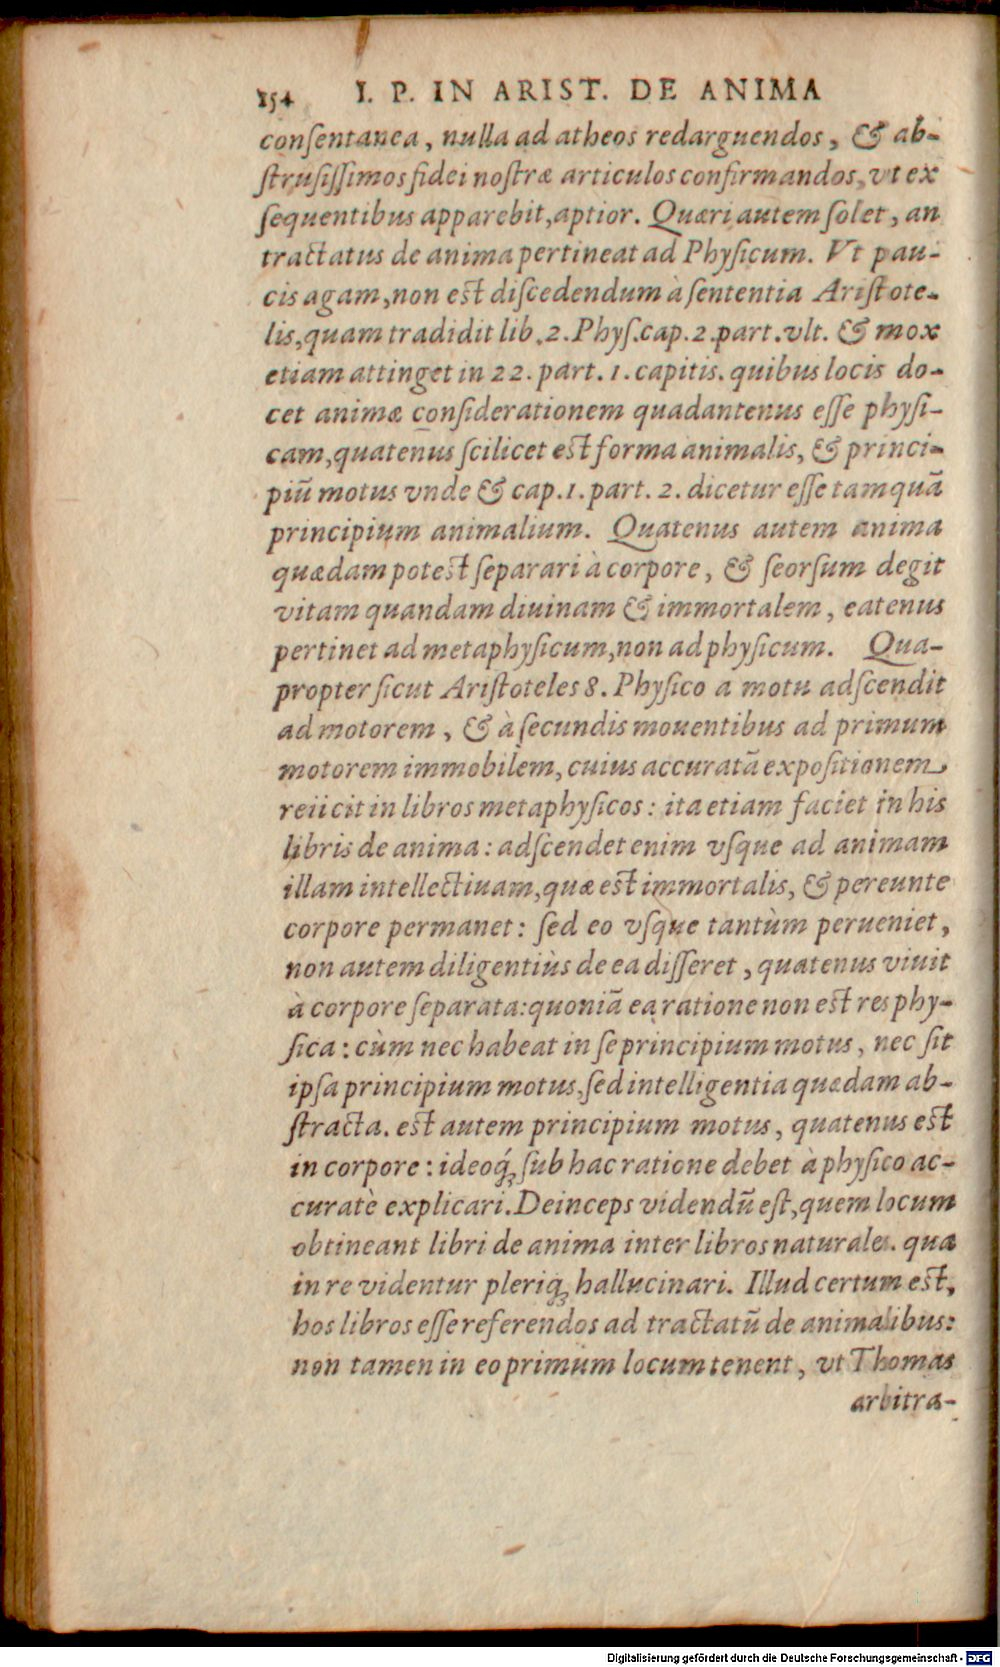 154 I. P. IN ARIST. DE ANIMA
conſentanea, nulla ad atheos redarguendos, & ab-
ſtruſiſſimos fidei noſtræ articulos confirmandos, vt ex
ſequentibus apparebit, aptior. Quæri autem ſolet, an
tractatus de anima pertineat ad Phyſicum. Vt pau-
cis agam, non eſt diſcedendum à ſententia Ariſtote-
lis, quam tradidit lib. 2. Phyſ. cap. 2. part. vlt. & mox
etiam attinget in 22. part. 1. capitis. quibus locis do-
cet animæ conſiderationem quadantenus eſſe phyſi-
cam, quatenus ſcilicet eſt forma animalis, & princi-
piū motus vnde & cap. 1. part. 2. dicetur eſſe tamquā
principium animalium. Quatenus autem anima
quædam poteſt ſeparari à corpore, & ſeorſum degit
vitam quandam diuinam & immortalem, eatenus
pertinet ad metaphyſicum, non ad phyſicum. Qua-
propter ſicut Ariſtoteles 8. Phyſico a motu adſcendit
ad motorem, & à ſecundis mouentibus ad primum
motorem immobilem, cuius accuratā expoſitionem
reiicit in libros metaphyſicos: ita etiam faciet in his
libris de anima: adſcendet enim vſque ad animam
illam intellectiuam, quæ eſt immortalis, & pereunte
corpore permanet: ſed eo vſque tantùm perueniet,
non autem diligentiùs de ea diſſeret, quatenus viuit
à corpore ſeparata: quoniā ea ratione non eſt res phy-
ſica: cùm nec habeat in ſe principium motus, nec ſit
ipſa principium motus, ſed intelligentia quædam ab-
ſtracta. eſt autem principium motus, quatenus eſt
in corpore: ideoq́; ſub hac ratione debet à phyſico ac-
curatè explicari. Deinceps videndū eſt, quem locum
obtineant libri de anima inter libros naturales. qua
in re videntur pleriq; hallucinari. Illud certum eſt,
hos libros eſſe referendos ad tractatū de animalibus:
non tamen in eo primum locum tenent, vt Thomas
arbitra-
Digitalisierung gefördert durch die Deutsche Forschungsgemeinschaft - DFG